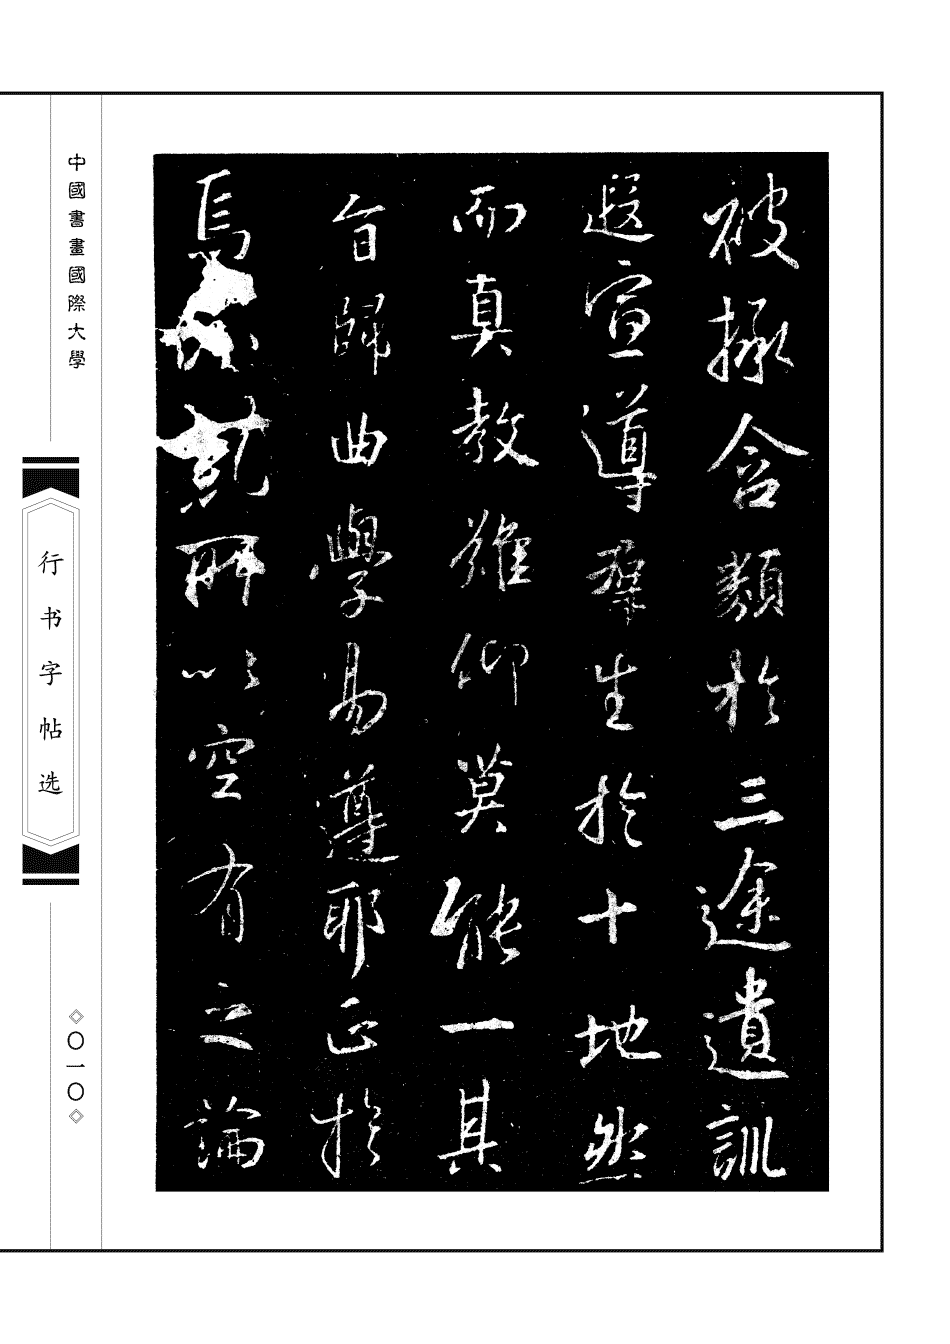 被拯含類於三途遺訓
遐宣導群生於十地然
而真教難仰莫能一其
旨歸曲學易遵耶正於
焉紛糺所以空有之論
中國書畫國際大學
行书字帖选
〇一〇